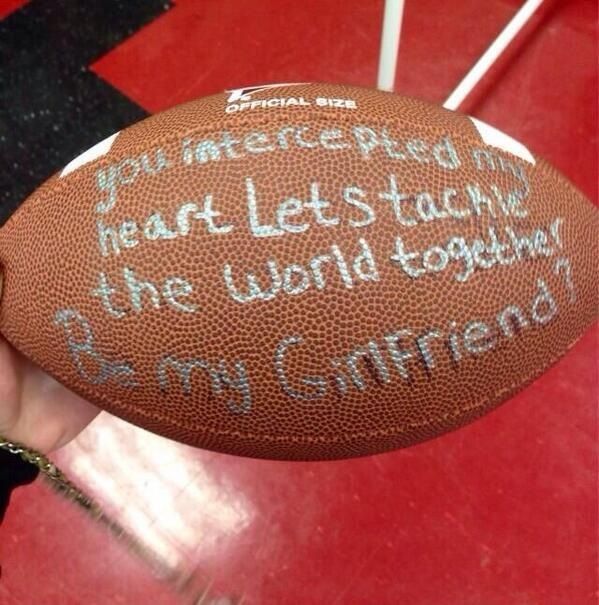 OFFICIAL SIZE
you intercepted my
heart Lets tackle
the World together
Be my GirlFriend?